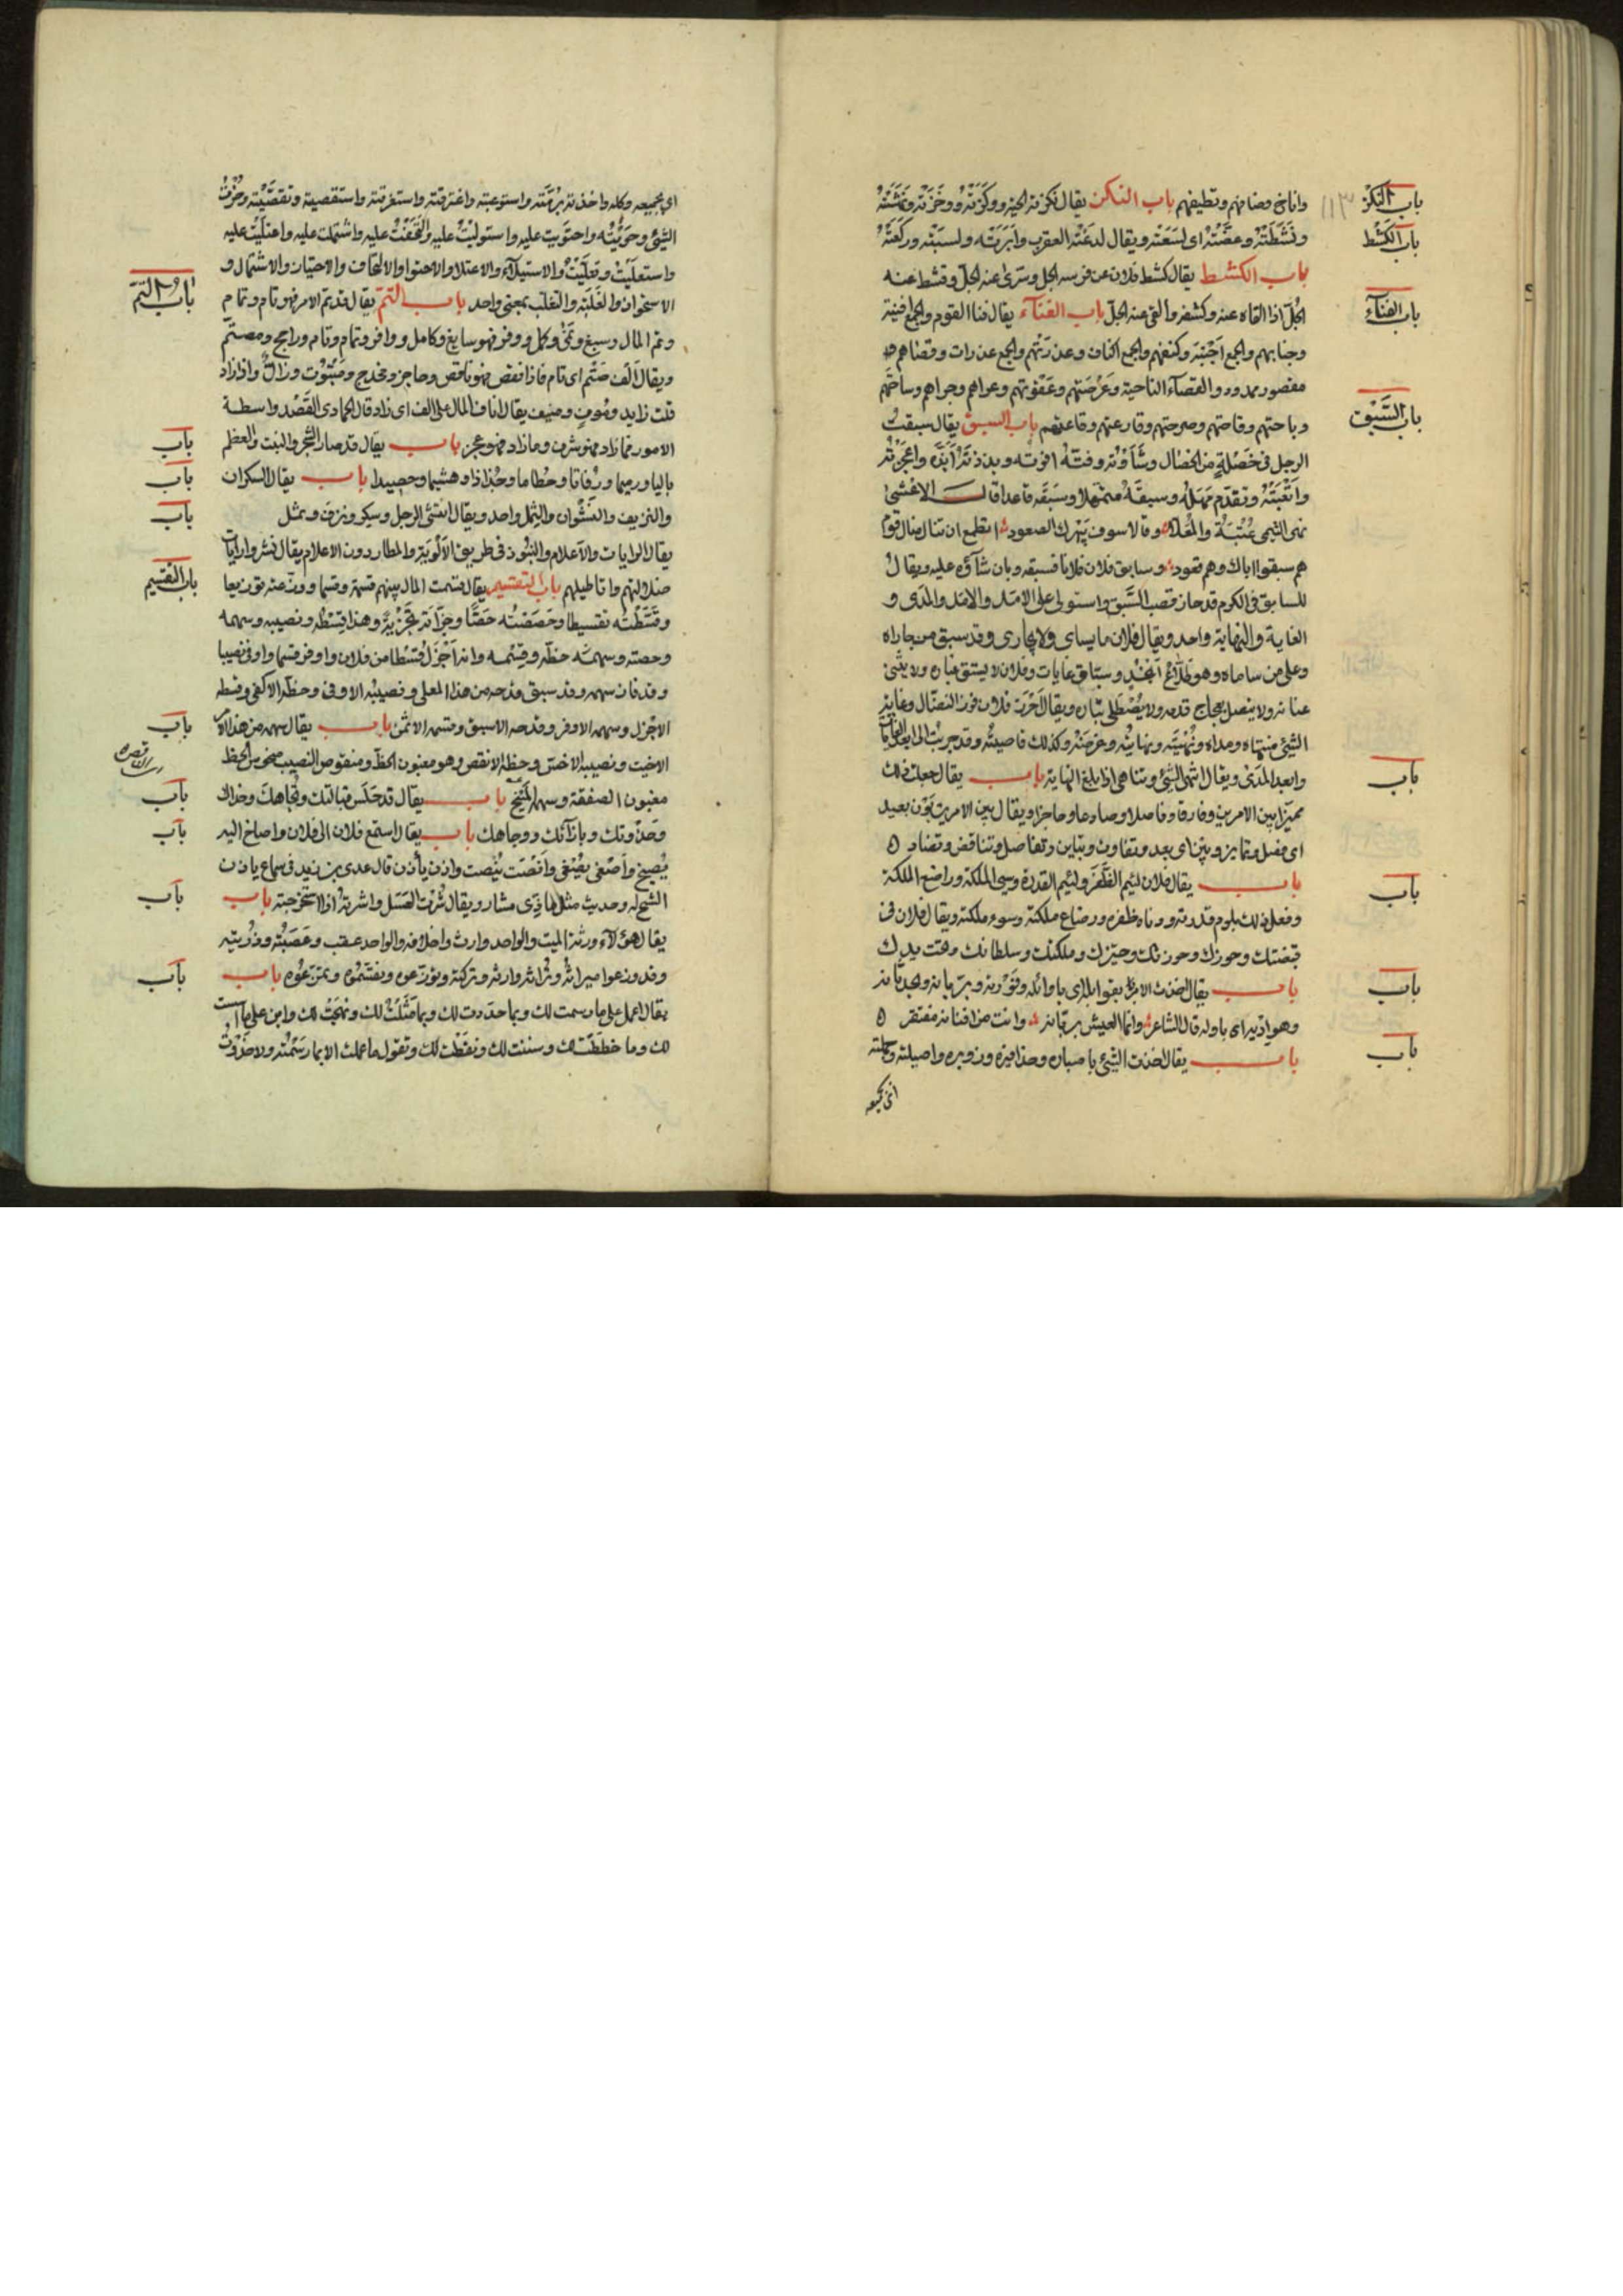 باب النكز
وانا نخ وضامنهم وتطيفهم باب النكز يقال نكزته الحية ووكزته ووخزته ونهشته
باب الكشط
ونشطته وعضته اى لسعته ويقال لدغته العقرب وابرته ولسبته
باب الكشط يقال كشط فلان عن فرسه الجل وسرى عنه الجل وقشط عنه
باب الفناء
الجل اذا القاه عنه وكشفه والقى عنه الجل باب الفناء يقال فنا القوم والجمع افنية
وجنابهم والجمع اجنبة وكنفهم والجمع اكناف وعذرتهم والجمع عذرات وقضاهم
مقصور ممدود والقصاء الناحية وعرصتهم وعقوتهم وعراهم وحراهم وساحتهم
باب السبق
وباحتهم وقاحتهم وصرحتهم وقارعتهم وقاعتهم باب السبق يقال سبقت
الرجل فى خصلة من الخصال وشأوته وفته افوته وبذذته ابذه واعجزته
واتعبته وتقدم مهله وسبقه متمهلا وسبقه قاعدا قال الاعشى
هم سبقوا اباك وهم قعود وسابق فلان فلانا فسبقه وبان شأوه عليه ويقال
للسابق فى الكرم قد حاز قصب السبق واستولى على الامد والامد والمدى و
الغاية والنهاية واحد ويقال فلان ما يساى ولا يجارى وقد سبق من جاراه
وعلى من ساماه وهو طلاع انجد وسباق غايات وفلان لا يشق غباره ولا يثنى
عنانه ولا يصطلى بناره
باب
وابعد المدى ويقال انتهى الشئ وتناهى اذا بلغ النهاية باب يقال جعلت ذلك
مميزا بين الامرين وفارقا وفاصلا وحاجزا ويقال بين الامرين بون بعيد
اى فصل وتمايز وبين اى بعد وتفاوت وتباين وتفاضل وتناقض وتضاد
باب
باب يقال فلان لئيم الظفر ولئيم القدرة وسيئ الملكة وراضع الملكة
وفعل ذلك بلوم قدرته ودناءة ظفره ورضاع ملكته وسوء ملكته ويقال فلان فى
قبضتك وحوزك وحوزتك وحيزك وملكتك وسلطانك وتحت يدك
باب
باب يقال اخذت الامر بقوابله اى باوائله وبربانه وبحدثانه
اى باوله قال الشاعر وانما العيش بربانه وانت من افنانه مفتقر
باب
باب يقال اخذت الشئ باصباره وحذافيره وزوبره واصيلته
اى بجميعه
اى بجميعه وكله واخذته برمته واستوعبته واغترقته واستغرقته واستقصيته وتقصيته وحزت
الشئ وحويته واحتويت عليه واستوليت عليه والتحفت عليه واشتملت عليه واعتليت عليه
واستعليت وتعليت والاستيلاء والاعتلاء والاحتوا والالتحاف والاحتياز والاشتمال و
باب التم
الاستحواذ والغلبة والتغلب بمعنى واحد باب التم يقال قد تم الامر فهو تام وتمام
وتم المال وسبغ ونمى وكمل ووفر فهو سابغ وكامل ووافر وتمام وتام وراجح ومصتم
ويقال الف صتم اى تام فاذا نقص فهو ناقص وحاجز ومخدج ومبتور واذا زاد
قلت زايد ومنيف يقال اناف المال على الف اى زاد قال القصد واسطة
باب
الامور فما زاد فهو سرف وما زاد فهو عجز باب يقال قد صار الشجر والنبت والعظم
باب
باليا ورميما ورفاتا وحطاما وجذاذا وهشيما وحصيدا باب يقال السكران
باب
والنزيف والنشوان والثمل واحد ويقال انتشى الرجل وسكر ونزف وثمل
يقال الرايات والاعلام والبنود فى طريق الالوية والمطارد دون الاعلام يقال نشروا رايات
باب التقسيم
ضلالتهم واباطيلهم باب التقسيم يقال قسمت المال بينهم قسمة وقسما ووزعته توزيعا
وقسطته تقسيطا وحصصته حصصا وجزأته تجزئة وهذا قسطه ونصيبه وسهمه
وحصته وسهمته حظه وقسمه وانه اجزل قسطا من فلان واوفر قسما واوفى نصيبا
وقد فاز سهمه وقد سبق قدحه من هذا المعلى ونصيبه الاوفى وحظه الاكفى وقسطه
باب
الاجزل وسهمه الاوفر وقدحه الاسبق وقسمه الاثمن باب يقال سهمه من هذا الامر
الاخيب ونصيبه الاخس وحظه الانقص وهو مغبون الحظ ومنقوص النصيب مبخوس الحظ
باب
مغبون الصفقة وسهمه المنيح باب يقال قد جلس قبالتك وتجاهك وحذاك
باب
وحذوتك وبازائك ووجاهك باب يقال استمع فلان الى فلان واصاخ اليه
يصيخ واصغى يصغى وانصت ينصت واذن يأذن قال عدى بن زيد فى سماع ياذن
باب
الشيخ له وحديث مثل ماذى مشار ويقال شرت العسل واشرته اذا استخرجته باب
يقال هؤلاء ورثة الميت والواحد وارث واخلافه والواحد عقب وعصبته وذريته
باب
وقد وزعوا ميراثه وتراثه وارثه وتركته وتوزعوه وتقسموه وتمزعوه باب
يقال اعمل على ما رسمت لك وبما حددت لك وبما مثلت لك ونهجت لك وابن على ما اسست
لك وما خططت لك وسننت لك ونقطت لك وتقول ما عملت الا بما رسمته ولا حذوت